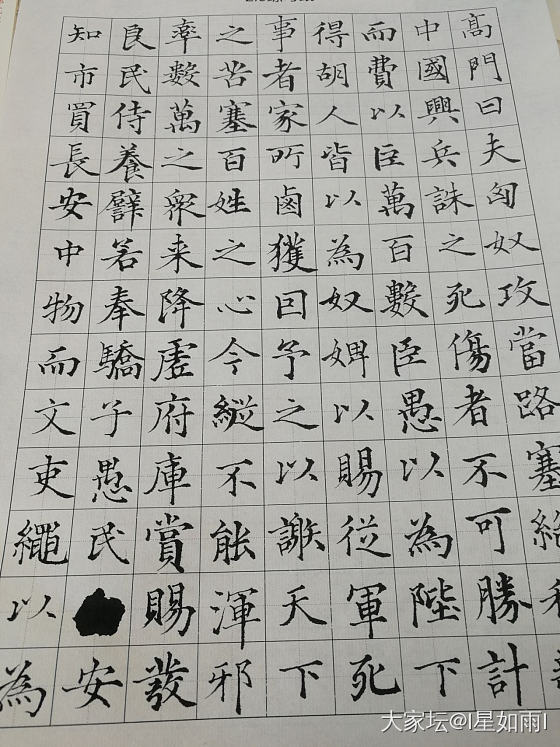 高門曰夫匈奴攻當路塞
中國興兵誅之死傷者不可勝計
而費以臣萬百數臣愚以為陛下
得胡人皆以為奴婢以賜從軍死
事者家所鹵獲回予之以謝天下
之苦塞百姓之心今縱不能渾邪
率數萬之衆来降虛府庫賞賜發
良民侍養譬若奉驕子愚民安
知市買長安中物而文吏繩以為
大家坛@I星如雨I